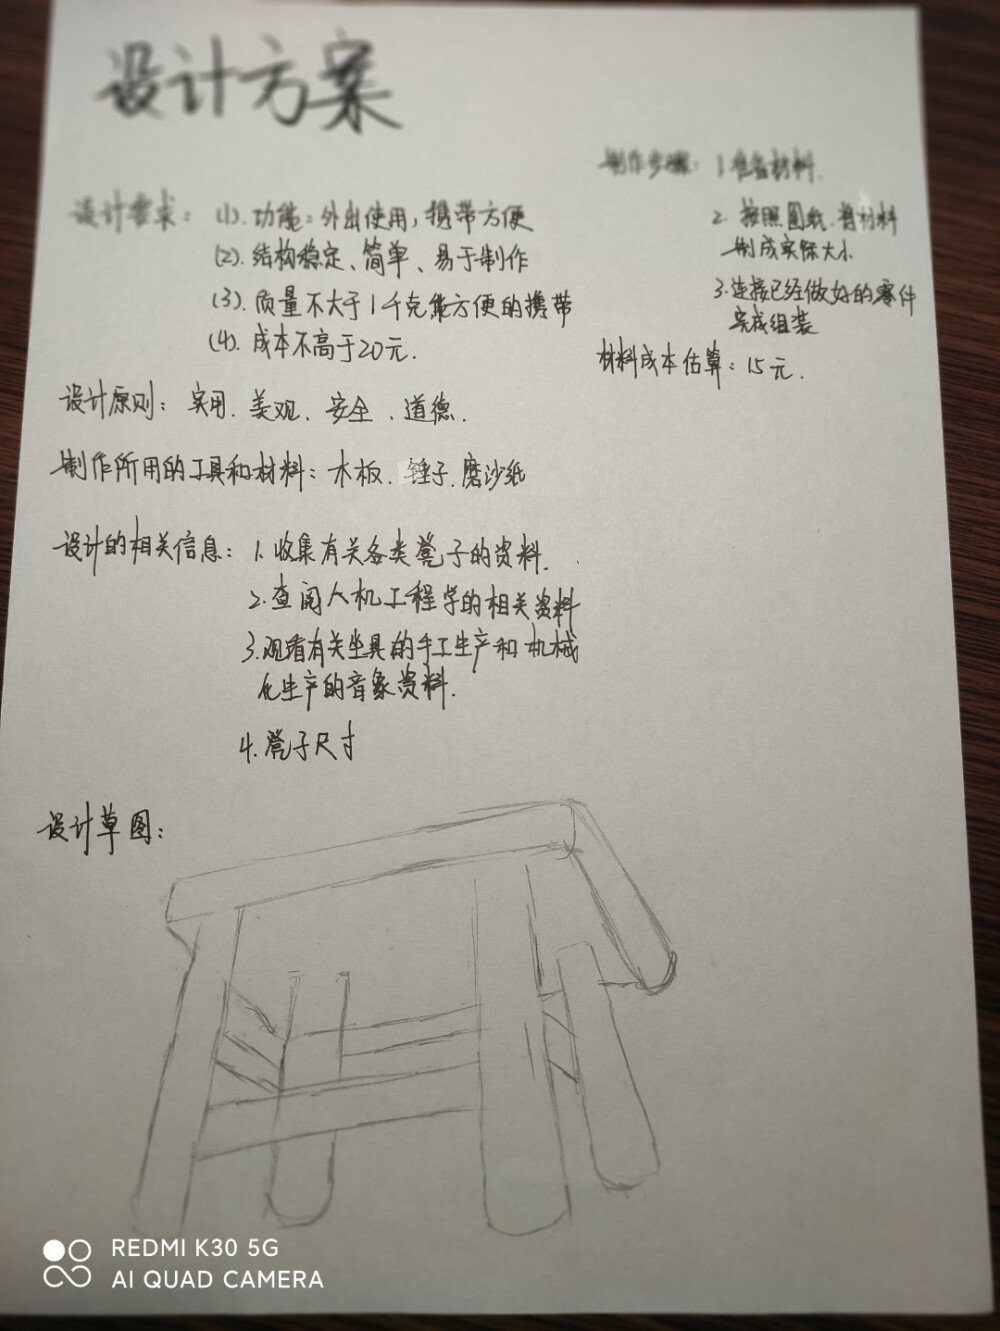 设计方案
设计要求：(1).功能：外出使用，携带方便
(2).结构稳定、简单、易于制作
(3).质量不大于1千克能方便的携带
(4).成本不高于20元.
设计原则：实用.美观.安全.道德.
制作所用的工具和材料：木板.锤子.磨沙纸
设计的相关信息：1.收集有关各类凳子的资料.
2.查阅人机工程学的相关资料
3.观看有关坐具的手工生产和机械
化生产的音象资料.
4.凳子尺寸
设计草图：
制作步骤：1准备材料.
2.按照图纸.将材料
制成实际大小
3.连接已经做好的零件
完成组装
材料成本估算：15元.
REDMI K30 5G
AI QUAD CAMERA